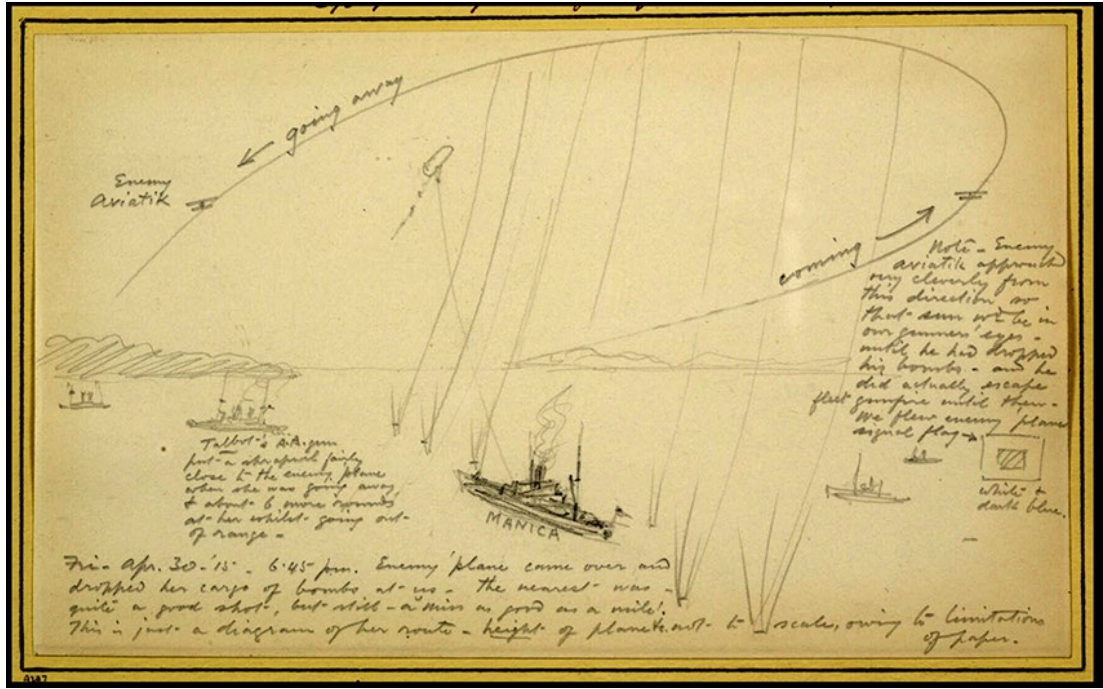 ← going away
Enemy
Aviatik
coming
Note - Enemy
aviatik approached
very cleverly from
this direction so
that sun wd be in
our gunners' eyes -
until he had dropped
his bombs - and he
did actually escape
fleet gunfire until then -
We flew enemy plane
signal flag →
white &
dark blue.
Talbot's A.A. gun
put a shrapnel fairly
close to the enemy plane
when she was going away
& about 6 more rounds
at her whilst going out
of range -
MANICA
Fri - Apr. 30 - '15 - 6.45 pm. Enemy 'plane came over and
dropped her cargo of bombs at us - the nearest was -
quite a good shot, but still - a miss as good as a mile!
This is just a diagram of her route - height of plane &c. not to scale, owing to limitations
of paper.